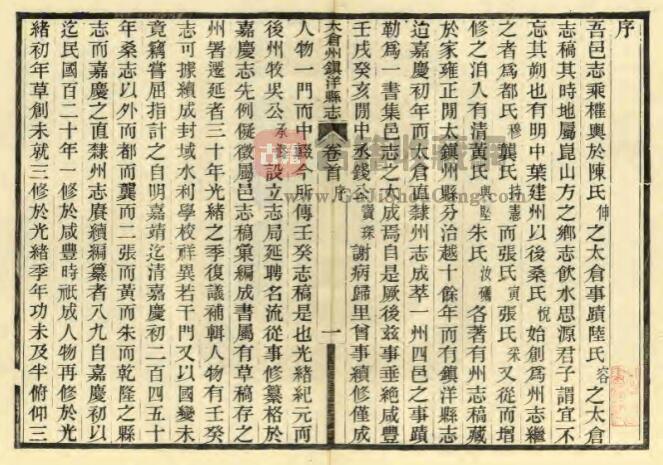 序
吾邑志乘權輿於陳氏伸之太倉事蹟陸氏容之太倉
志稿其時地屬崑山方之鄉志飲水思源君子謂宜不
忘其朔也有明中葉建州以後桑氏悅始創為州志繼
之者為都氏穆龔氏持憲而張氏寅張氏采又從而增
修之洎人有清黃氏與堅朱氏汝礪各著有州志稿藏
於家雍正閒太鎮州縣分治越十餘年而有鎮洋縣志
迨嘉慶初年而太倉直隸州志成萃一州四邑之事蹟
勒為一書集邑志之大成焉自是厥後茲事垂絕咸豐
壬戌癸亥閒中丞錢公寶琛謝病歸里曾事續修僅成
太倉州鎮洋縣志 卷首 序 一
人物一門而中輟今所傳壬癸志稿是也光緒紀元而
後州牧吳公承潞設立志局延聘名流從事修纂格於
嘉慶志先例僅徵屬邑志稿彙編成書屬有草稿存之
州署遷延者三十年光緒之季復議補輯人物有壬癸
志可據續成封域水利學校祥異若干門又以國變未
竟竊嘗屈指計之自明嘉靖迄清嘉慶初二百四五十
年桑志以外而都而龔而二張而黃而朱而乾隆之縣
志而嘉慶之直隸州志賡續編纂者八九自嘉慶初以
迄民國百二十年一修於咸豐時祇成人物再修於光
緒初年草創未就三修於光緒季年功未及半俯仰三
古籍
GuJiShuCang.com